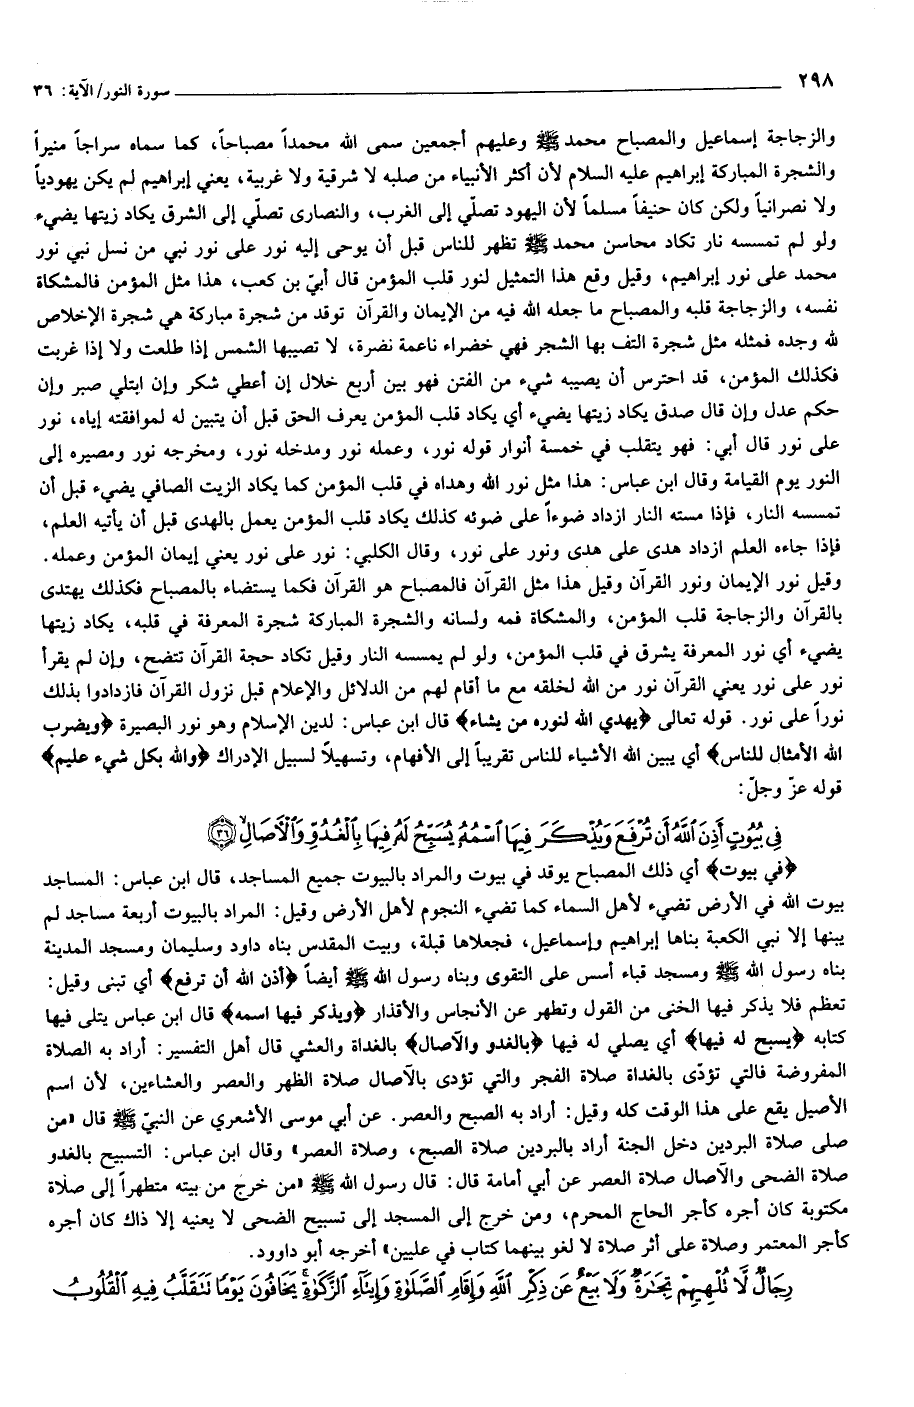 ٢٩٨ سورة النور/ الآية: ٣٦
والزجاجة إسماعيل والمصباح محمد ﷺ وعليهم أجمعين سمى الله محمداً مصباحاً، كما سماه سراجاً منيراً
والشجرة المباركة إبراهيم عليه السلام لأن أكثر الأنبياء من صلبه لا شرقية ولا غربية، يعني إبراهيم لم يكن يهودياً
ولا نصرانياً ولكن كان حنيفاً مسلماً لأن اليهود تصلّي إلى الغرب، والنصارى تصلّي إلى الشرق يكاد زيتها يضيء
ولو لم تمسسه نار تكاد محاسن محمد ﷺ تظهر للناس قبل أن يوحى إليه نور على نور نبي من نسل نبي نور
محمد على نور إبراهيم، وقيل وقع هذا التمثيل لنور قلب المؤمن قال أبيّ بن كعب، هذا مثل المؤمن فالمشكاة
نفسه، والزجاجة قلبه والمصباح ما جعله الله فيه من الإيمان والقرآن توقد من شجرة مباركة هي شجرة الإخلاص
لله وحده فمثله مثل شجرة التف بها الشجر فهي خضراء ناعمة نضرة، لا تصيبها الشمس إذا طلعت ولا إذا غربت
فكذلك المؤمن، قد احترس أن يصيبه شيء من الفتن فهو بين أربع خلال إن أعطي شكر وإن ابتلي صبر وإن
حكم عدل وإن قال صدق يكاد زيتها يضيء أي يكاد قلب المؤمن يعرف الحق قبل أن يتبين له لموافقته إياه، نور
على نور قال أبي: فهو يتقلب في خمسة أنوار قوله نور، وعمله نور ومدخله نور، ومخرجه نور ومصيره إلى
النور يوم القيامة وقال ابن عباس: هذا مثل نور الله وهداه في قلب المؤمن كما يكاد الزيت الصافي يضيء قبل أن
تمسسه النار، فإذا مسته النار ازداد ضوءاً على ضوئه كذلك يكاد قلب المؤمن يعمل بالهدى قبل أن يأتيه العلم،
فإذا جاءه العلم ازداد هدى على هدى ونور على نور، وقال الكلبي: نور على نور يعني إيمان المؤمن وعمله.
وقيل نور الإيمان ونور القرآن وقيل هذا مثل القرآن فالمصباح هو القرآن فكما يستضاء بالمصباح فكذلك يهتدى
بالقرآن والزجاجة قلب المؤمن، والمشكاة فمه ولسانه والشجرة المباركة شجرة المعرفة في قلبه، يكاد زيتها
يضيء أي نور المعرفة يشرق في قلب المؤمن، ولو لم يمسسه النار وقيل تكاد حجة القرآن تتضح، وإن لم يقرأ
نور على نور يعني القرآن نور من الله لخلقه مع ما أقام لهم من الدلائل والإعلام قبل نزول القرآن فازدادوا بذلك
نوراً على نور. قوله تعالى ﴿يهدي الله لنوره من يشاء﴾ قال ابن عباس: لدين الإسلام وهو نور البصيرة ﴿ويضرب
الله الأمثال للناس﴾ أي يبين الله الأشياء للناس تقريباً إلى الأفهام، وتسهيلاً لسبيل الإدراك ﴿والله بكل شيء عليم﴾
قوله عزّ وجلّ:
فِي بُيُوتٍ أَذِنَ اللَّهُ أَن تُرْفَعَ وَيُذْكَرَ فِيهَا اسْمُهُ يُسَبِّحُ لَهُ فِيهَا بِالْغُدُوِّ وَالْآصَالِ ﴿٣٦﴾
﴿في بيوت﴾ أي ذلك المصباح يوقد في بيوت والمراد بالبيوت جميع المساجد، قال ابن عباس: المساجد
بيوت الله في الأرض تضيء لأهل السماء كما تضيء النجوم لأهل الأرض وقيل: المراد بالبيوت أربعة مساجد لم
يبنها إلا نبي الكعبة بناها إبراهيم وإسماعيل، فجعلاها قبلة، وبيت المقدس بناه داود وسليمان ومسجد المدينة
بناه رسول الله ﷺ ومسجد قباء أسس على التقوى وبناه رسول الله ﷺ أيضاً ﴿أذن الله أن ترفع﴾ أي تبنى وقيل:
تعظم فلا يذكر فيها الخنى من القول وتطهر عن الأنجاس والأقذار ﴿ويذكر فيها اسمه﴾ قال ابن عباس يتلى فيها
كتابه ﴿يسبح له فيها﴾ أي يصلي له فيها ﴿بالغدو والآصال﴾ بالغداة والعشي قال أهل التفسير: أراد به الصلاة
المفروضة فالتي تؤدّى بالغداة صلاة الفجر والتي تؤدى بالآصال صلاة الظهر والعصر والعشاءين، لأن اسم
الأصيل يقع على هذا الوقت كله وقيل: أراد به الصبح والعصر. عن أبي موسى الأشعري عن النبيّ ﷺ قال «من
صلى صلاة البردين دخل الجنة أراد بالبردين صلاة الصبح، وصلاة العصر» وقال ابن عباس: التسبيح بالغدو
صلاة الضحى والآصال صلاة العصر عن أبي أمامة قال: قال رسول الله ﷺ «من خرج من بيته متطهراً إلى صلاة
مكتوبة كان أجره كأجر الحاج المحرم، ومن خرج إلى المسجد إلى تسبيح الضحى لا يعنيه إلا ذاك كان أجره
كأجر المعتمر وصلاة على أثر صلاة لا لغو بينهما كتاب في عليين» أخرجه أبو داوود.
رِجَالٌ لَّا تُلْهِيهِمْ تِجَارَةٌ وَلَا بَيْعٌ عَن ذِكْرِ اللَّهِ وَإِقَامِ الصَّلَاةِ وَإِيتَاءِ الزَّكَاةِ يَخَافُونَ يَوْمًا تَتَقَلَّبُ فِيهِ الْقُلُوبُ